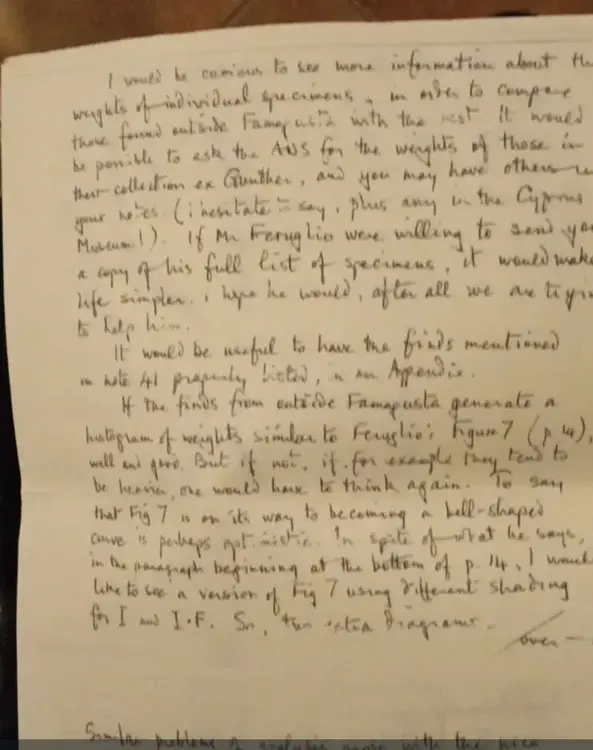 I would be curious to see more information about the
weights of individual specimens, in order to compare
those found outside Famagusta with the rest. It would
be possible to ask the ANS for the weights of those in
their collection ex Gunther, and you may have others in
your notes (I hesitate to say, plus any in the Cyprus
Museum!). If Mr Feruglio were willing to send you
a copy of his full list of specimens, it would make
life simpler. I hope he would, after all we are trying
to help him.
It would be useful to have the finds mentioned
in note 41 properly listed, in an Appendix.
If the finds from outside Famagusta generate a
histogram of weights similar to Feruglio's Figure 7 (p. 14),
well and good. But if not, if, for example they tend to
be heavier, one would have to think again. To say
that Fig 7 is on its way to becoming a bell-shaped
curve is perhaps optimistic. In spite of what he says,
in the paragraph beginning at the bottom of p. 14, I would
like to see a version of Fig 7 using different shading
for I and I·F. So, two extra diagrams.
over
Similar problems of analysis arise with the